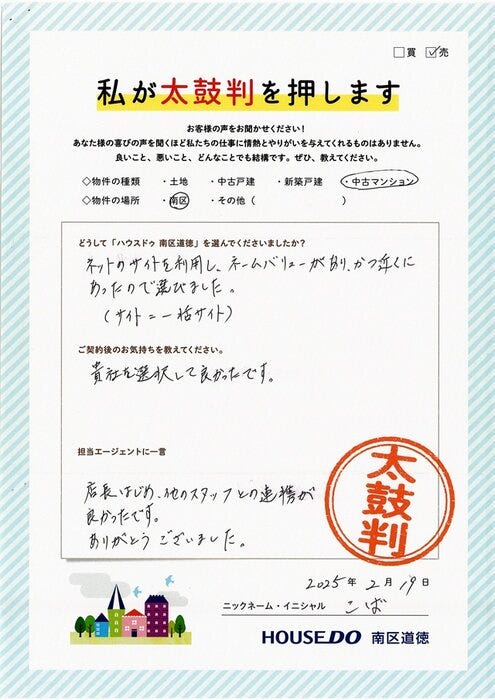 □買 ☑売
私が太鼓判を押します
お客様の声をお聞かせください！
あなた様の喜びの声を聞くほど私たちの仕事に情熱とやりがいを与えてくれるものはありません。
良いこと、悪いこと、どんなことでも結構です。ぜひ、教えてください。
◇物件の種類 ・土地 ・中古戸建 ・新築戸建 ・中古マンション
◇物件の場所 ・南区 ・その他（ ）
どうして「ハウスドゥ 南区道徳」を選んでくださいましたか？
ネットのサイトを利用し、ネームバリューがあり、かつ近くに
あったので選びました。
（サイト＝一括サイト）
ご契約後のお気持ちを教えてください。
貴社を選択して良かったです。
担当エージェントに一言
店長はじめ、他のスタッフとの連携が
良かったです。
ありがとうございました。
太鼓判
2025年2月19日
ニックネーム・イニシャル こば
HOUSEDO 南区道徳